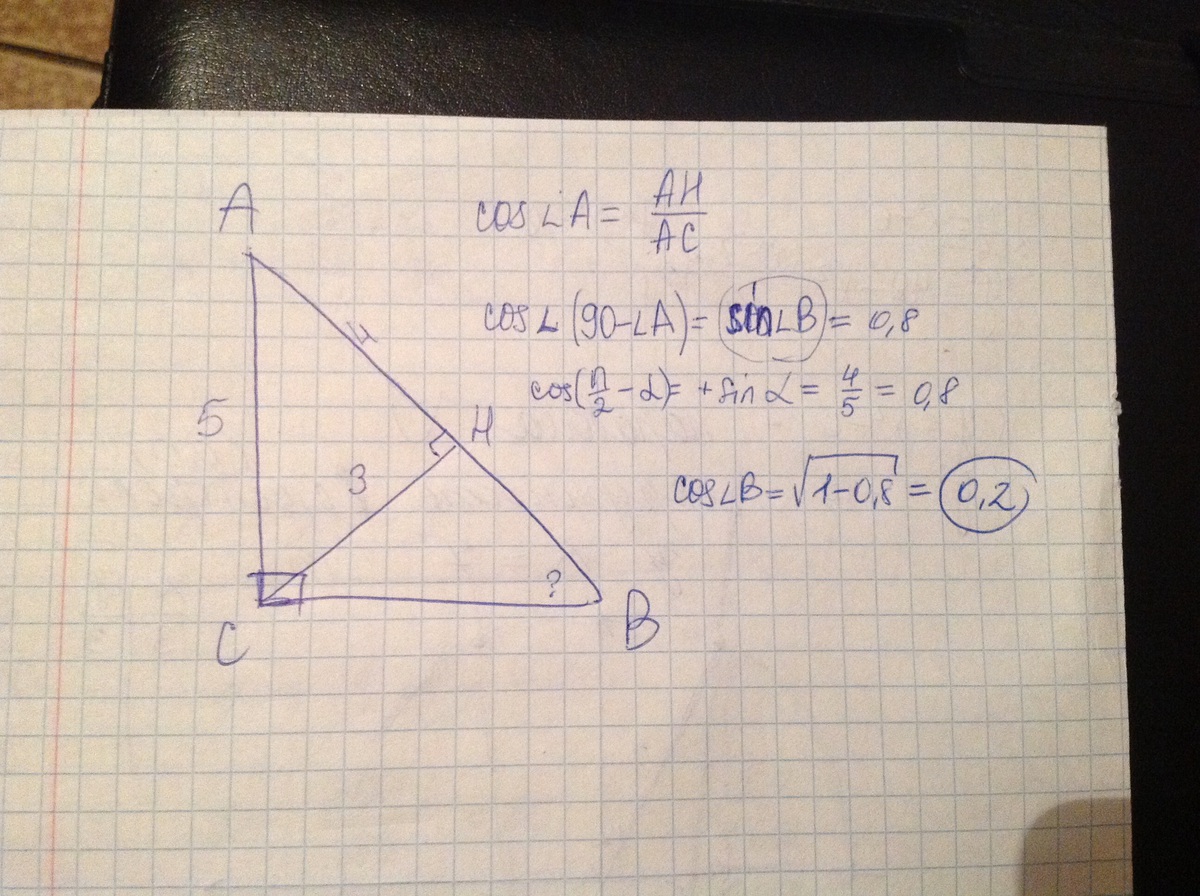 A
cos∠A = AH/AC
cos∠(90-∠A) = sin∠B = 0,8
cos(π/2 - α) = + sin α = 4/5 = 0,8
4
5
H
3
cos∠B = √1-0,8 = 0,2
?
C
B